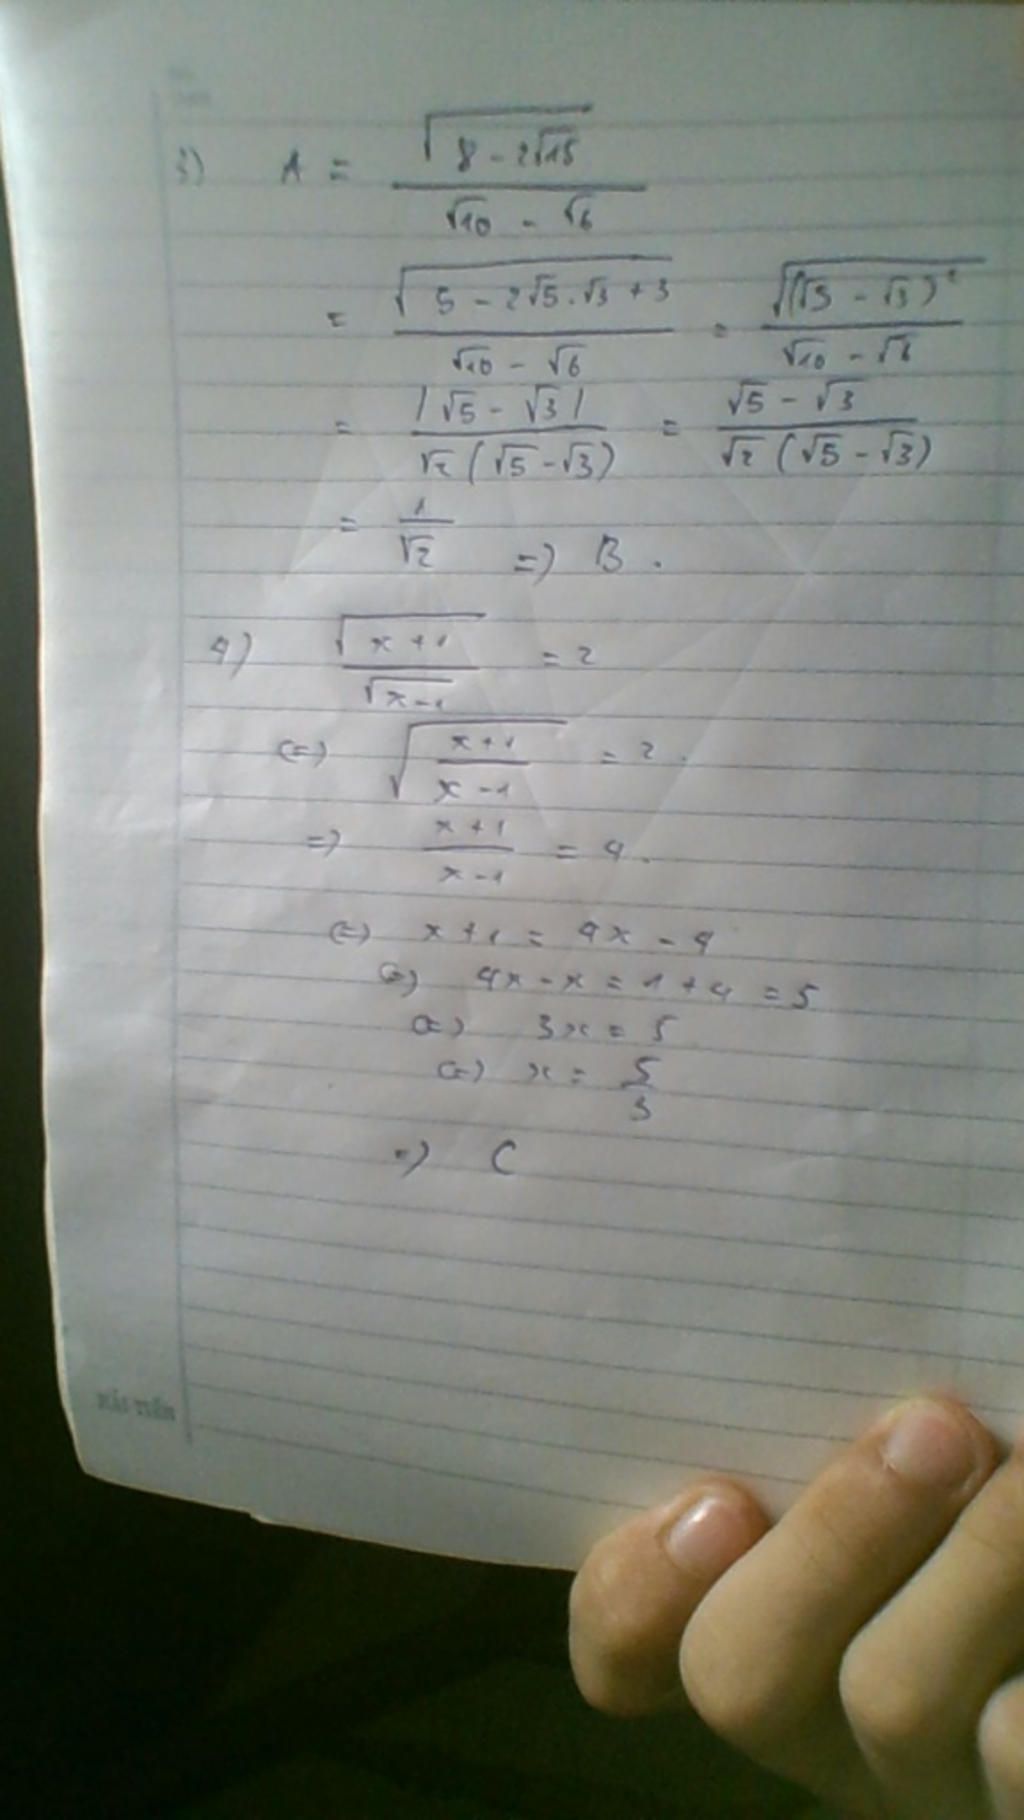 3) A = √(8 - 2√15) / (√10 - √6)
= √(5 - 2√5.√3 + 3) / (√10 - √6) = √((√5 - √3)²) / (√10 - √6)
= |√5 - √3| / (√2 (√5 - √3)) = (√5 - √3) / (√2 (√5 - √3))
= 1/√2 => B.
4) √(x+1) / √(x-1) = 2
(=) √((x+1)/(x-1)) = 2.
=) (x+1)/(x-1) = 4.
(=) x+1 = 4x - 4
(=) 4x - x = 1 + 4 = 5
(=) 3x = 5
(=) x = 5/3
=) C
HẢI TIẾN